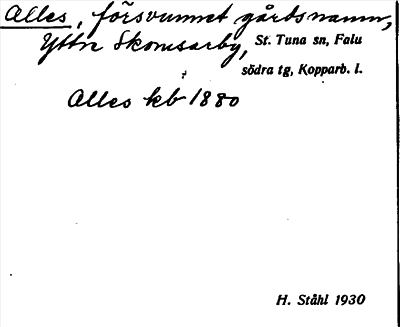 Alles, försvunnet gårdsnamn,
Yttr Skomsarby, St. Tuna sn, Falu
södra tg, Kopparb. l.
Alles kb 1880
H. Ståhl 1930